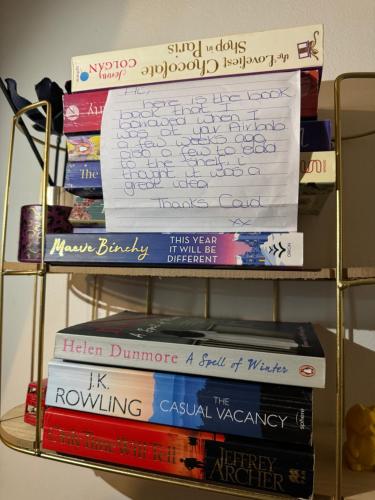 Jenny
COLGAN
the Loveliest Chocolate
Shop in Paris
Hi,
Here is the book
book that I
borrowed when I
was at your Airbnb
a few weeks ago
also a few to add
to the shelf, i
thought it was a
great idea
Thanks Carol
xx
The
Maeve Binchy
THIS YEAR
IT WILL BE
DIFFERENT
ORION
Helen Dunmore A Spell of Winter
J.K.
ROWLING
THE
CASUAL VACANCY
sphere
Only Time Will Tell
JEFFREY
ARCHER
PAN